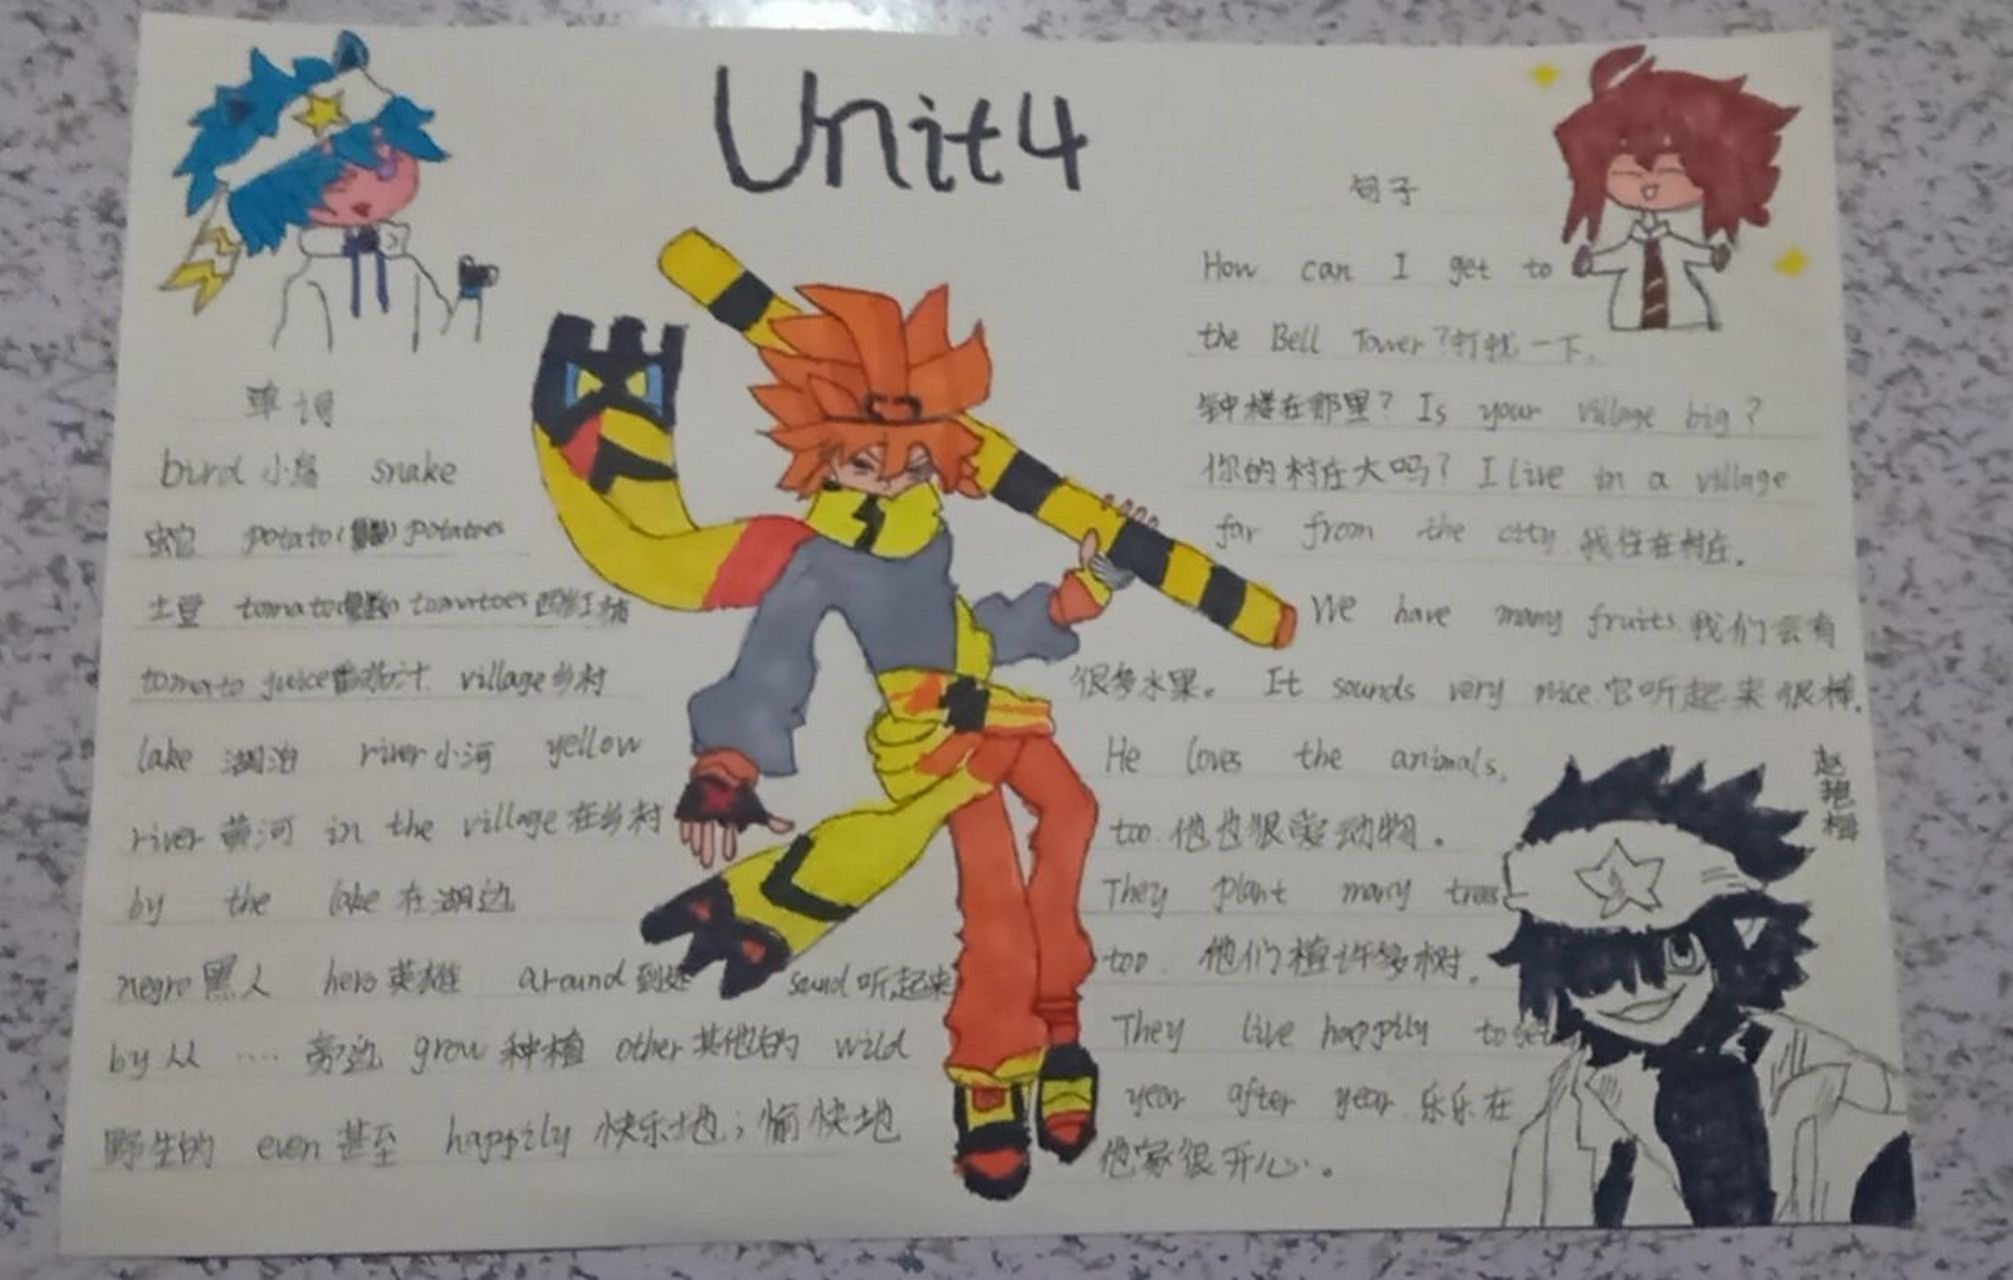 Unit4
单词
bird 小鸟 snake
蛇 potato(复数) potatoes
土豆 tomato(复数) tomatoes 西红柿
tomato juice 番茄汁 village 乡村
lake 湖泊 river 小河 yellow
river 黄河 in the village 在乡村
by the lake 在湖边
negro 黑人 hero 英雄 around 到处 sound 听起来
by 从 .... 旁边 grow 种植 other 其他的 wild
野生的 even 甚至 happily 快乐地；愉快地
句子
How can I get to
the Bell Tower?打扰一下,
钟楼在那里? Is your village big?
你的村庄大吗? I live in a village
far from the city 我住在村庄.
We have many fruits.我们会有
很多水果。 It sounds very nice.它听起来很棒.
He loves the animals,
too.他也很爱动物。
They plant many trees
too. 他们植许多树.
They live happily toget
year after year 乐乐在
他家很开心。
赵艳梅